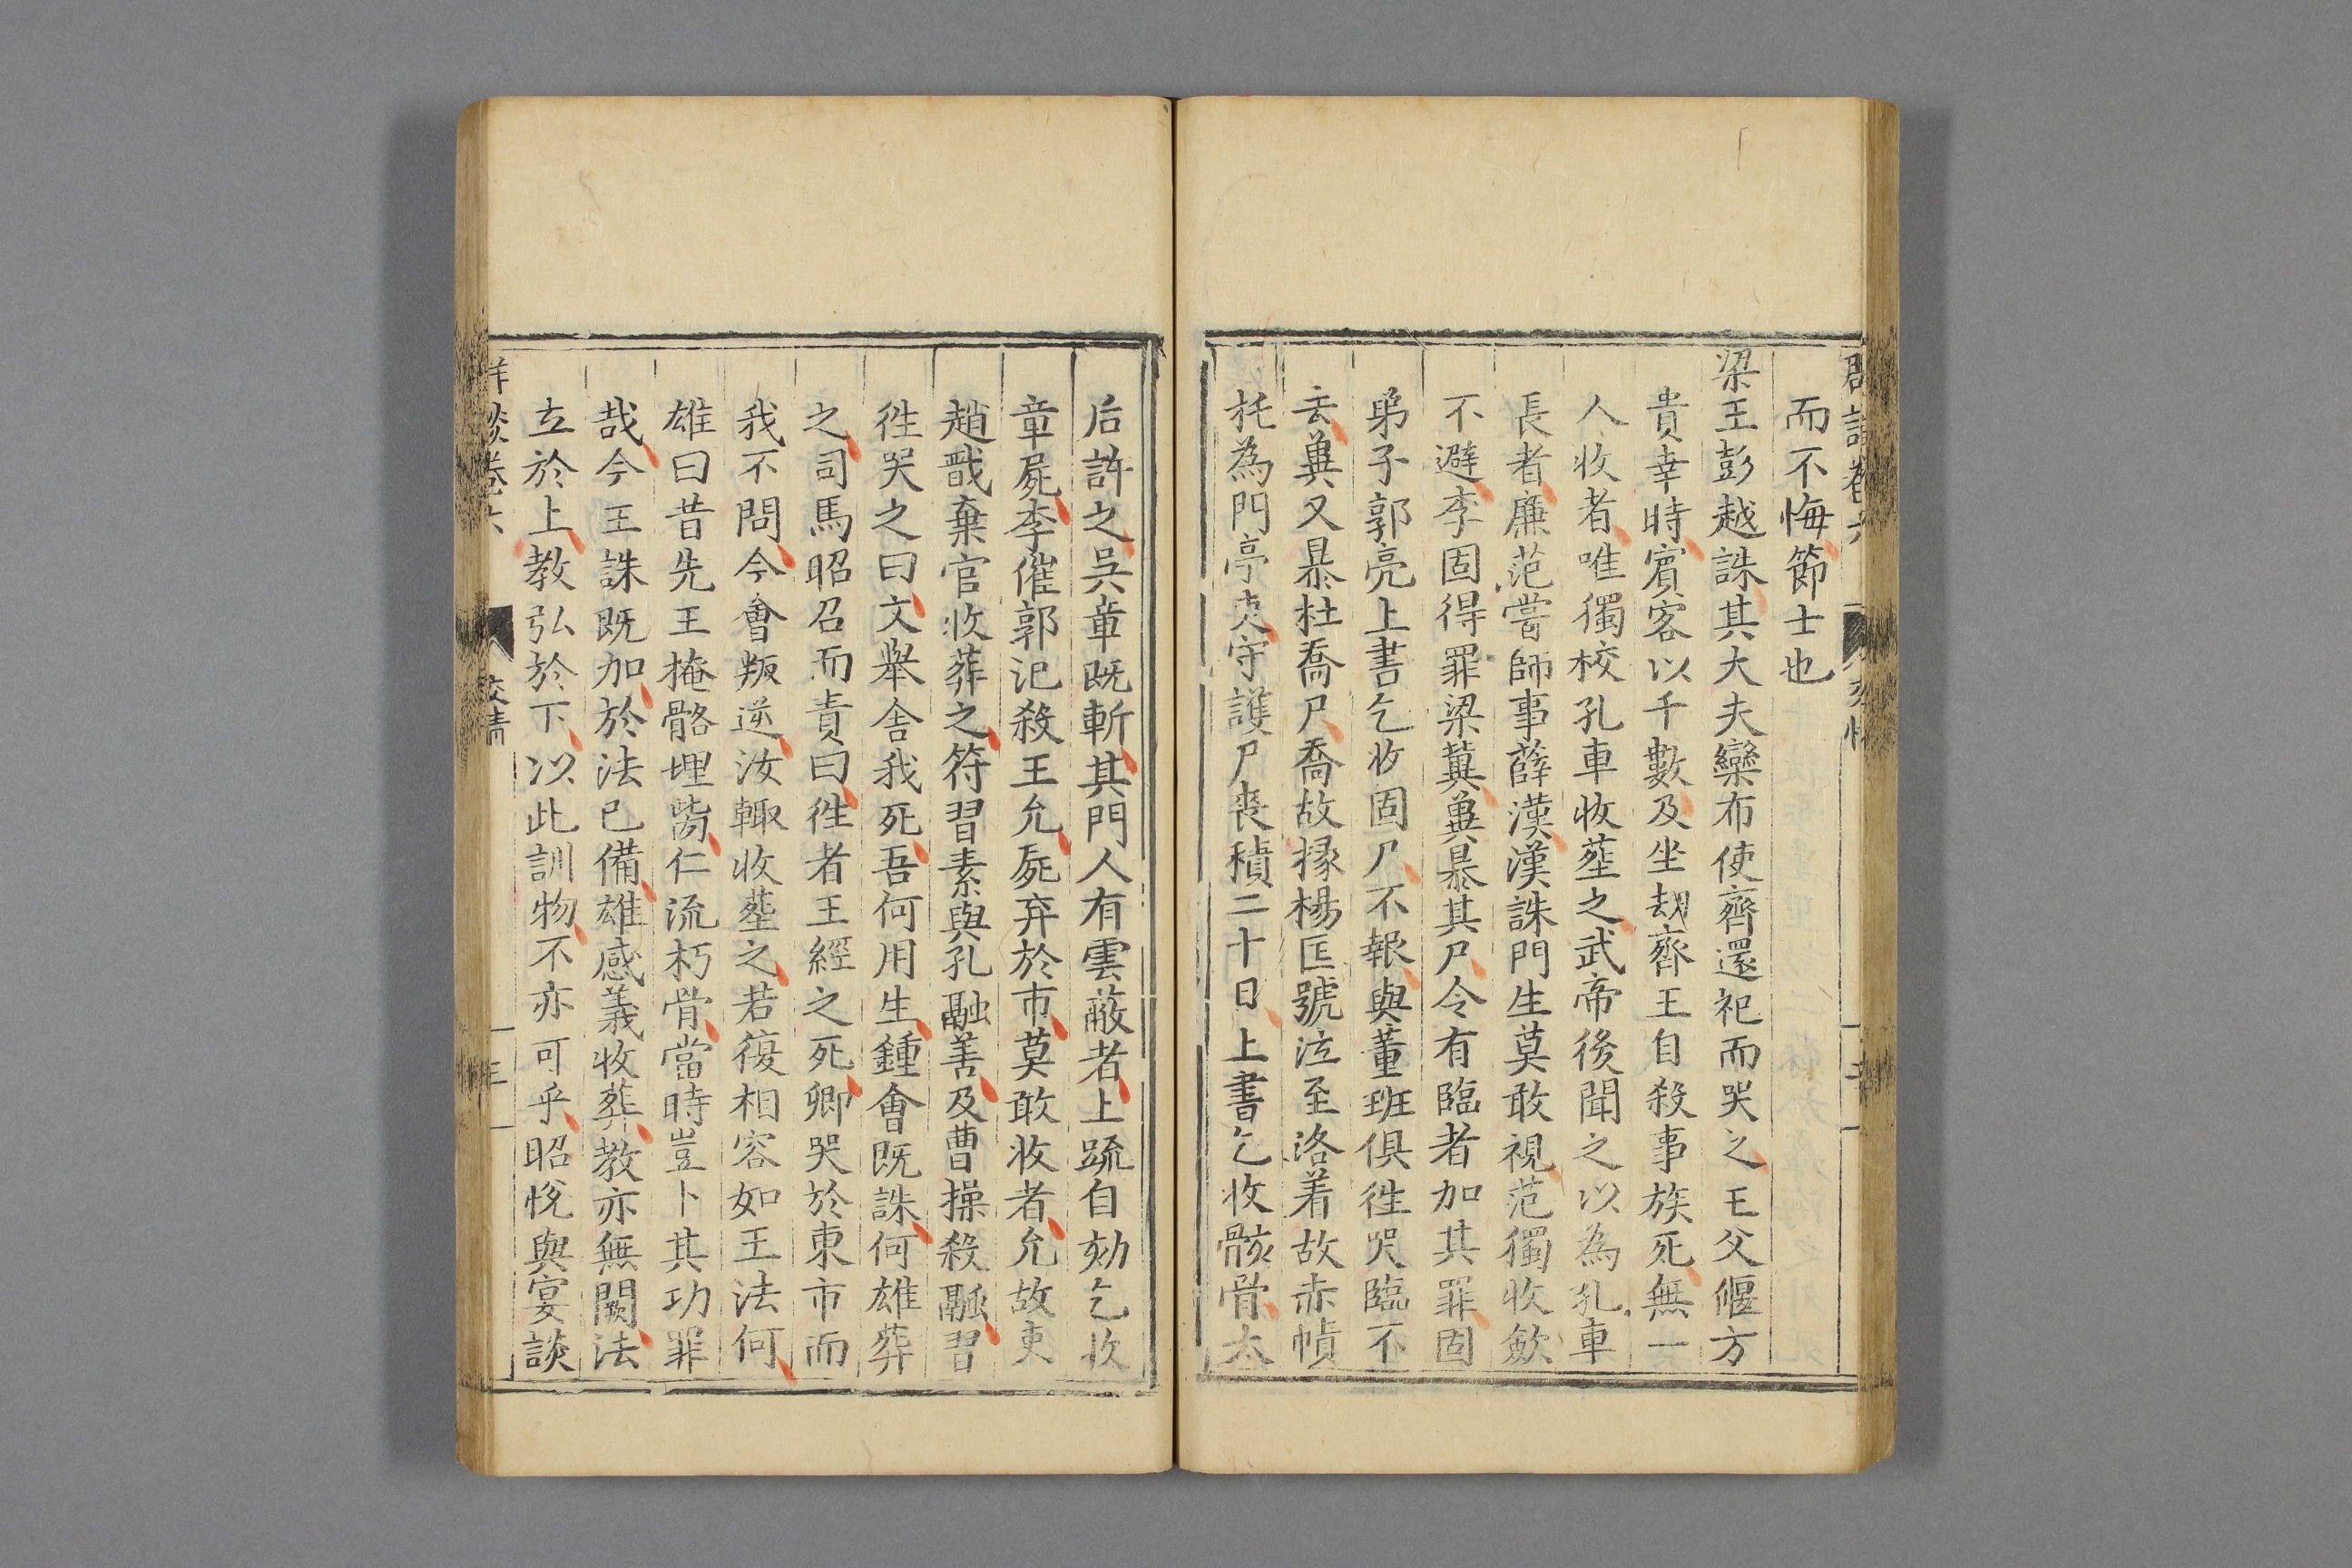 而不悔節士也
梁王彭越誅其大夫欒布使齊還祀而哭之王父偃方
貴幸時賓客以千數及坐刼齊王自殺事族死無一
人收者唯獨校孔車收塟之武帝後聞之以為孔車
長者廉范嘗師事薛漢漢誅門生莫敢視范獨收歛
不避李固得罪梁冀冀暴其尸令有臨者加其罪固
弟子郭亮上書乞收固尸不報與董班俱徃哭臨不
去冀又暴杜喬尸喬故掾楊匡號泣至洛着故赤幘
托為門亭吏守護尸喪積二十日上書乞收骸骨太
后許之吳章既斬其門人有雲蔽者上疏自劾乞收
章屍李催郭汜殺王允屍弃於市莫敢收者允故吏
趙戩棄官收葬之符習素與孔融善及曹操殺融習
徃哭之曰文舉舍我死吾何用生鍾會既誅何雄葬
之司馬昭召而責曰徃者王經之死卿哭於東市而
我不問今會叛逆汝輙收塟之若復相容如王法何
雄曰昔先王掩骼埋胔仁流朽骨當時豈卜其功罪
哉今王誅既加於法已備雄感義收葬教亦無闕法
立於上教弘於下以此訓物不亦可乎昭悅與宴談
卷六
交情